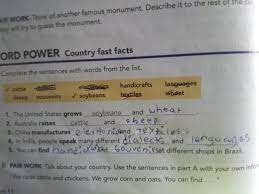 AIR WORK Think of another famous monument. Describe it to the rest of the
try to guess the monument.
ORD POWER Country fast facts
Complete the sentences with words from the list.
✓ cattle handicrafts languages
sheep souvenirs ✓ soybeans textiles wheat
1. The United States grows soybeans and wheat
2. Australia raises cattle and sheep
3. China manufactures and textiles
4. In India, people speak many different dialects and languages
5. You can find souvenirs at different shops in Brazil.
PAIR WORK Talk about your country. Use the sentences in part A with your own infor
We raise cattle and chickens. We grow corn and oats. You can find